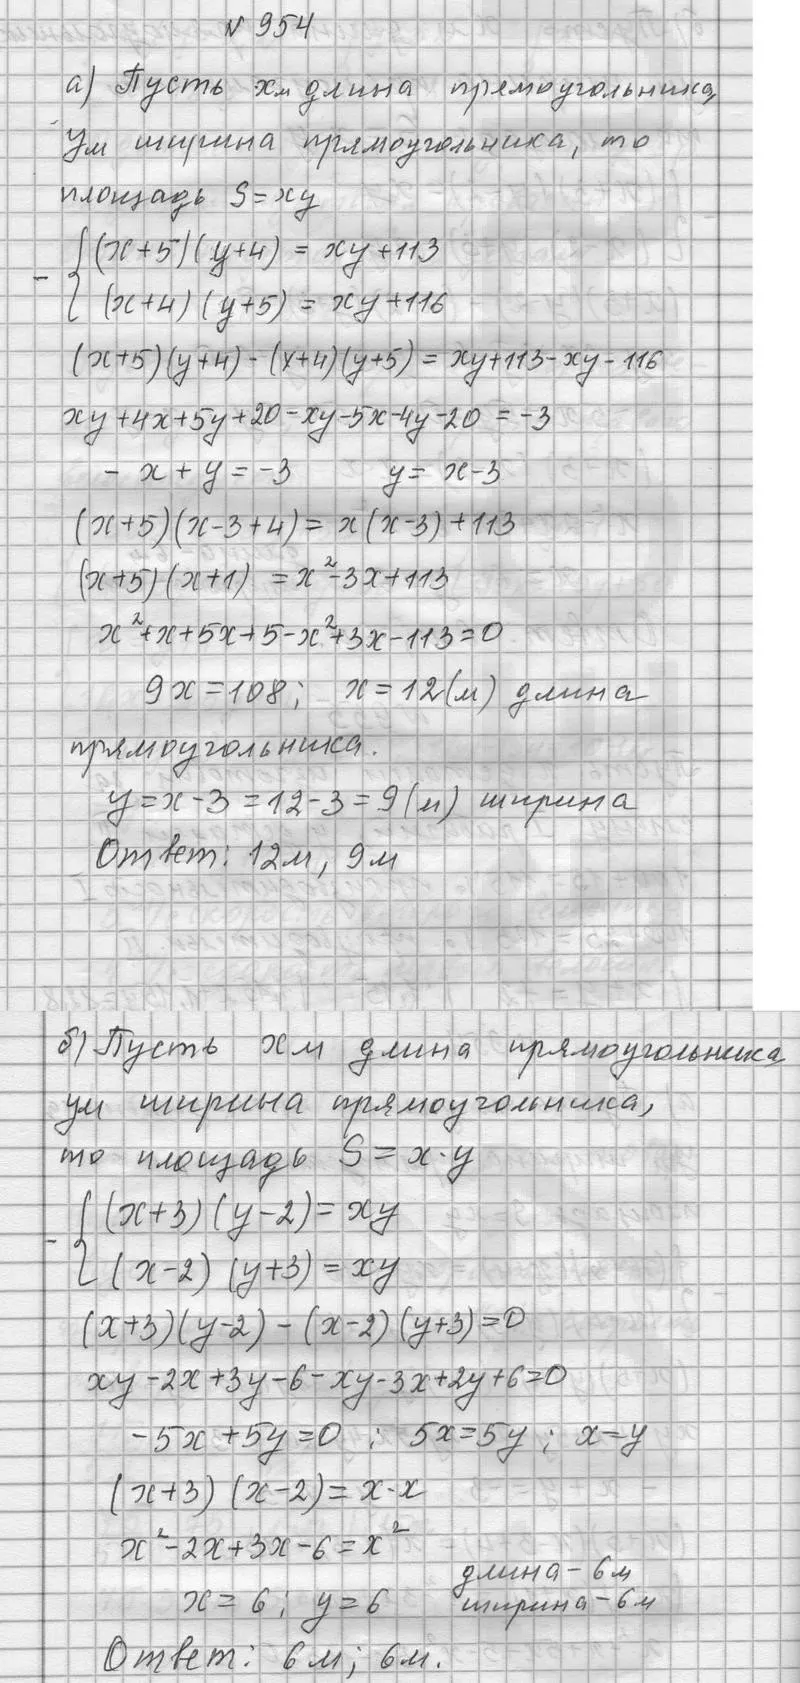 № 954
а) Пусть хм длина прямоугольника,
ум ширина прямоугольника, то
площадь S=xy
(x+5)(y+4) = xy+113
- (x+4)(y+5) = xy+116
(x+5)(y+4)-(x+4)(y+5)=xy+113-xy-116
xy+4x+5y+20-xy-5x-4y-20=-3
- x+y=-3 y=x-3
(x+5)(x-3+4)=x(x-3)+113
(x+5)(x+1)=x²-3x+113
x²+x+5x+5-x²+3x-113=0
9x=108; x=12(м) длина
прямоугольника.
y=x-3=12-3=9(м) ширина
Ответ: 12м, 9м
б) Пусть хм длина прямоугольника,
ум ширина прямоугольника,
то площадь S=x·y
(x+3)(y-2)=xy
- (x-2)(y+3)=xy
(x+3)(y-2)-(x-2)(y+3)=0
xy-2x+3y-6-xy-3x+2y+6=0
-5x+5y=0; 5x=5y; x=y
(x+3)(x-2)=x·x
x²-2x+3x-6=x²
длина-6м
x=6; y=6 ширина-6м
Ответ: 6м; 6м.